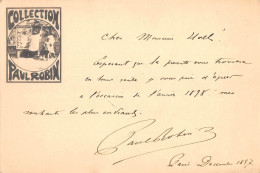 COLLECTION
PAUL ROBIN
Cher Monsieur
Espérant que la présente vous trouvera
en bonne santé je vous prie d'agréer
à l'occasion de l'année 1898 mes
souhaits les plus
Paul Robin
Paris Décembre 1897